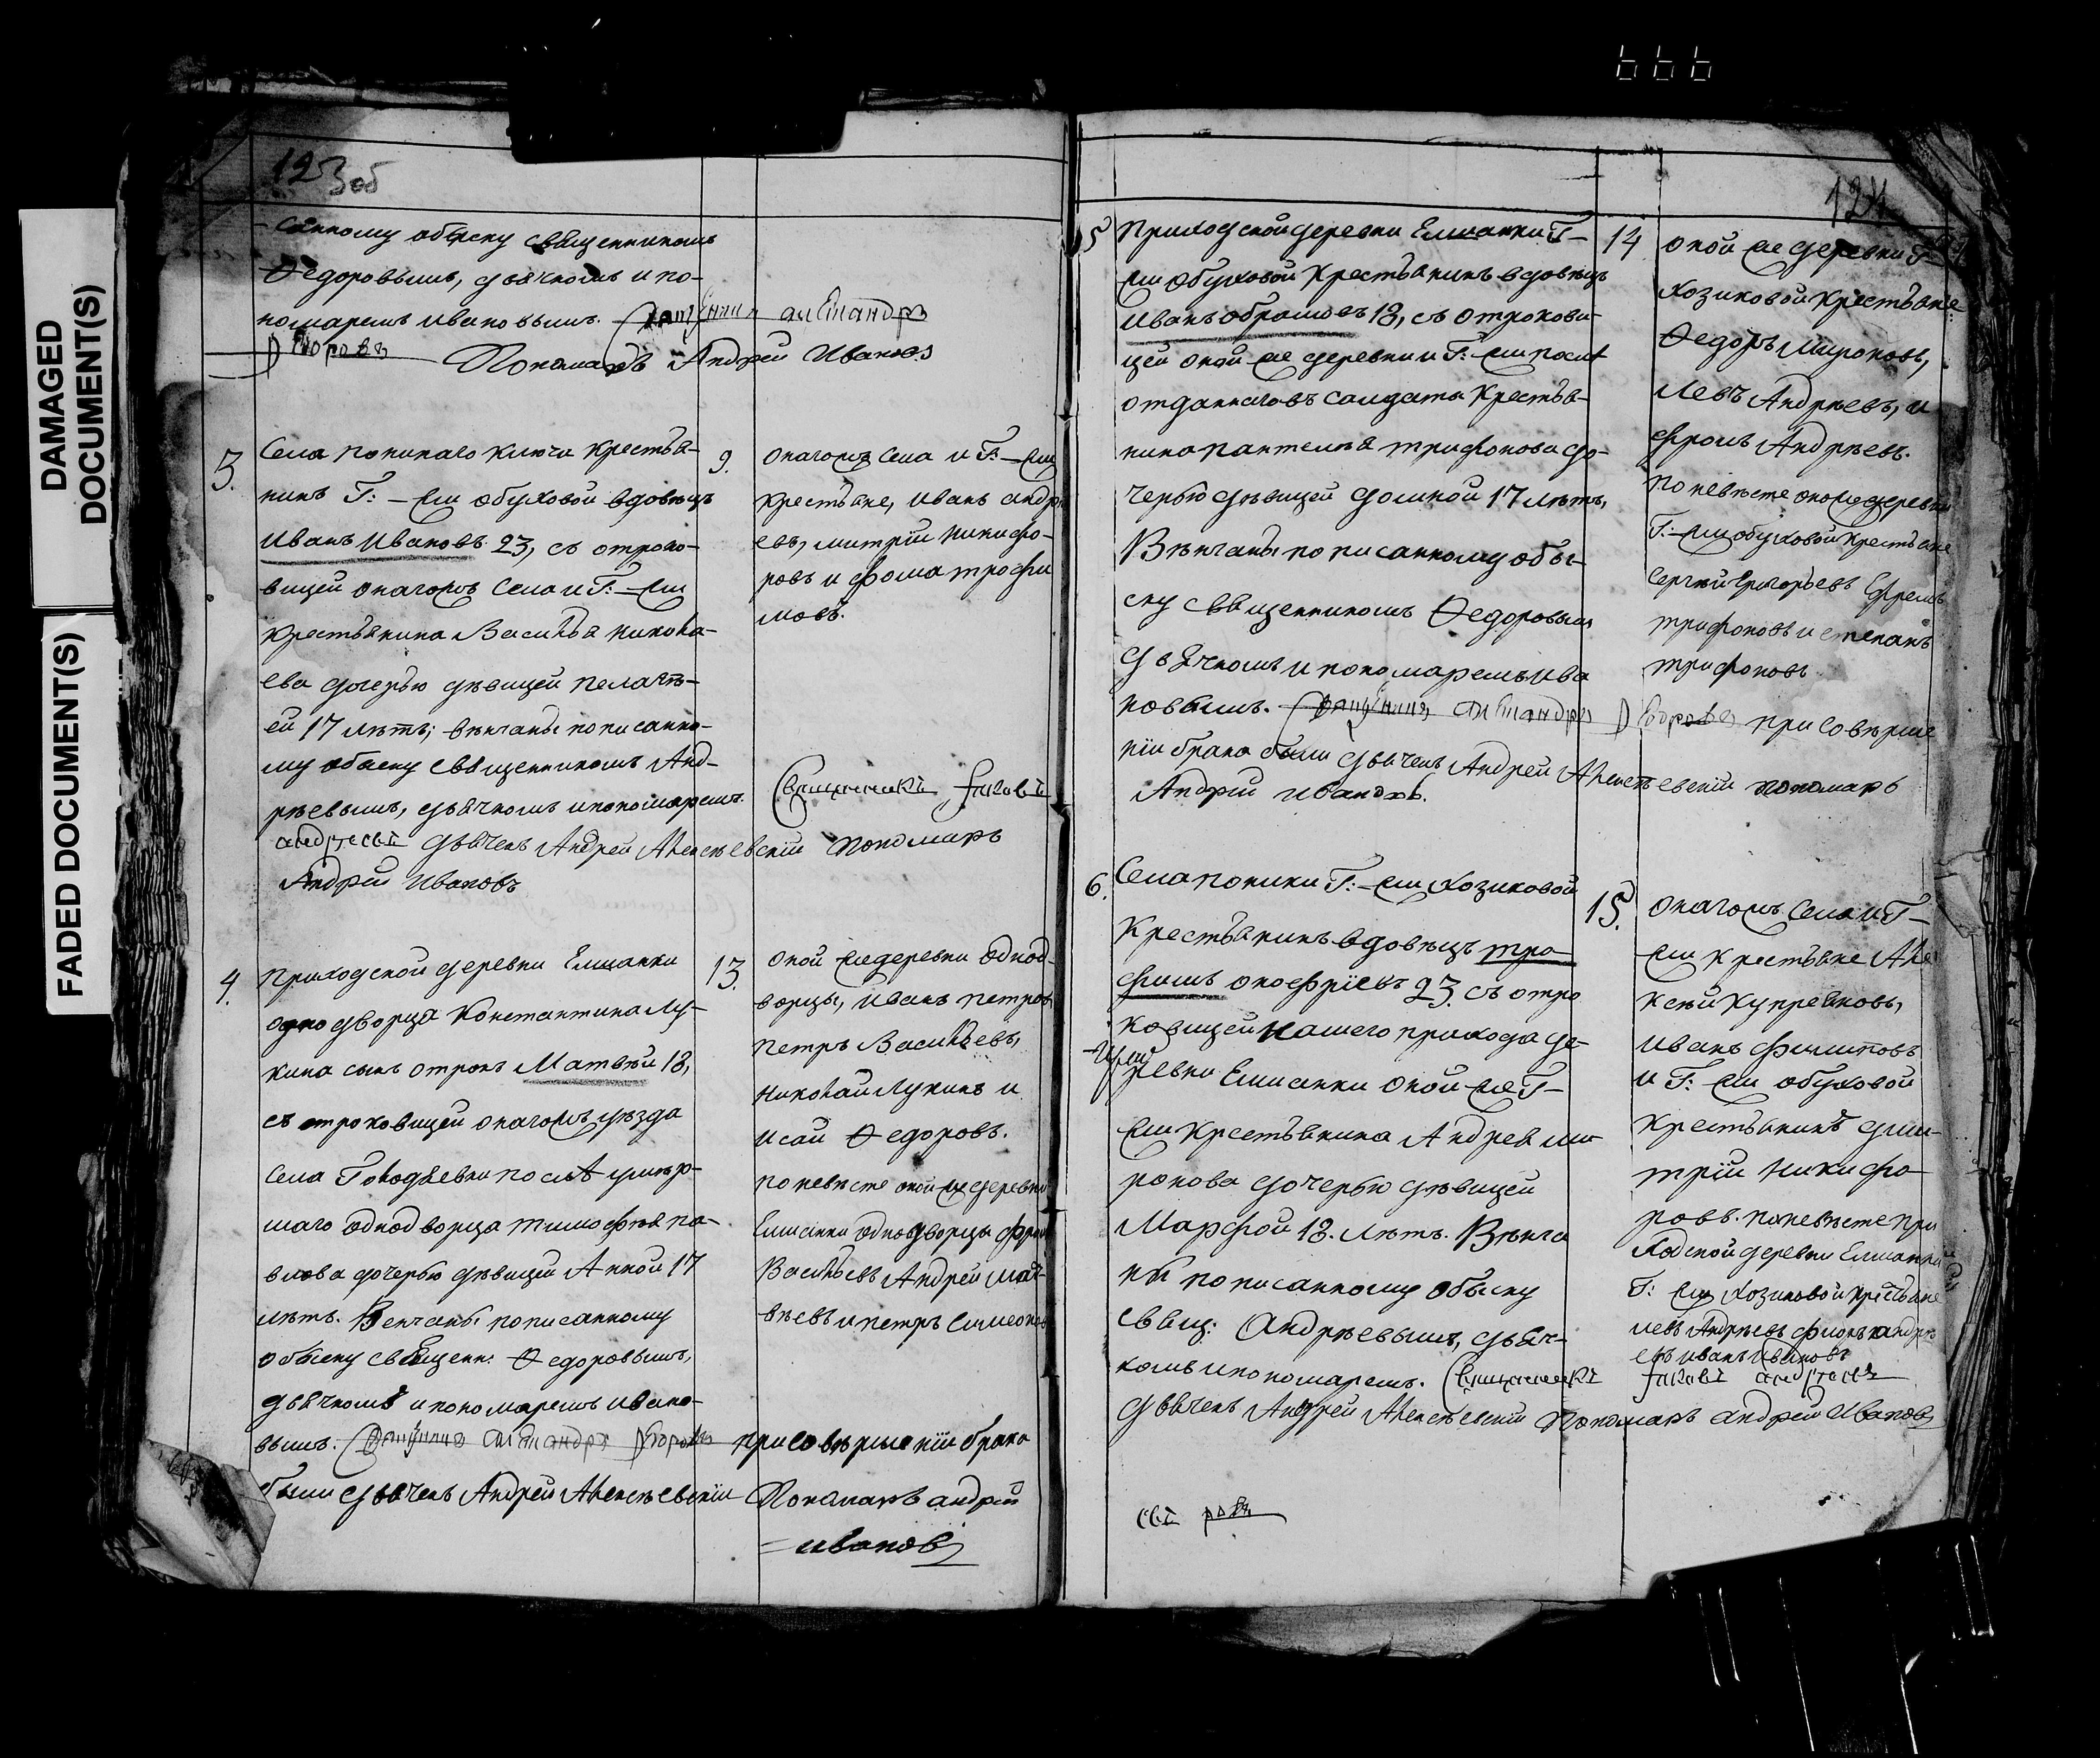 DAMAGED
DOCUMENT(S)
FADED DOCUMENT(S)
666
123 об
санному обыску священникомъ
Ѳедоровымъ, дьячкомъ и по-
номаремъ Ивановымъ.
Пономарь Андрей Ивановъ
3.
Села поникаго ключа крестья-
нинъ Г:-жи Обуховой вдовецъ
Иванъ Ивановъ 23, съ отроко-
вицей онагожъ села и Г:-жи
крестьянина Василья никола-
ева дочерью дѣвицей пелагѣ-
ей 17 лѣтъ; вѣнчаны по писанно-
му обыску священникомъ Анд-
рѣевымъ, дьячкомъ и пономаремъ.
Священникъ Іаковъ
андреевъ дьячекъ Андрей Алексѣевскій пономарь
Андрей Ивановъ
9.
онагожъ села и Г:-жи
крестьяне, иванъ андрѣ
евъ, митрій никифо-
ровъ и фома трофи
мовъ.
4.
приходской деревни Елшанки
однодворца Константина Лу-
кина сынъ отрокъ Матвѣй 18,
съ отроковицей онагожъ уѣзда
села Голодяевки послѣ умер-
шаго однодворца тимофѣя па-
влова дочерью дѣвицей Анной 17
лѣтъ. Венчаны по писанному
обыску священ: Ѳедоровымъ,
дьячкомъ и пономаремъ Ивано-
вымъ. при совѣршенїи брака
были дьячекъ Андрей Алексѣевскій Пономарь андрей
Ивановъ
13.
оной же деревни однод-
ворцы, Иванъ петровъ
петръ Васильевъ,
николай Лукинъ и
исай Ѳедоровъ.
по невѣсте оной же деревни
Елшанки однодворцы
Васильевъ Андрей мат-
вѣевъ и петръ Симеонов
124
5
приходской деревни Елшанки Г-
жи Обуховой крестьянинъ вдовецъ
Иванъ 18, съ отрокови-
цей оной же деревни и Г:-жи послѣ
отданнаго въ салдаты крестья-
нина пантелѣя трифонова до-
черью дѣвицей домной 17 лѣтъ,
Вѣнчаны по писанному обы-
ску священникомъ Ѳедоровым
дьячкомъ и пономаремъ Ива
новымъ. при совѣрше
нїи брака были дьячекъ Андрей Алексѣевскій пономарь
Андрей Ивановъ.
14
оной же деревни Г-
Козиковой крестьяне
Ѳедоръ мироновъ,
левъ Андрѣевъ, и
фролъ Андрѣевъ.
по невѣсте оной же деревни
Г:-жи обуховой крестьяне
Сергѣй Григорьевъ Ефремъ
трифоновъ и степанъ
трифоновъ
6.
Села поники Г:-жи Козиковой
крестьянинъ вдовецъ тро-
фимъ онофріевъ 23. съ отро
ковицей нашего прихода де-
ревни Елшанки оной же Г-
жи крестьянина Андрея ми-
ронова дочерью дѣвицей
Марфой 18. лѣтъ. Вѣнча
ны по писанному обыску
свящ: Андрѣевымъ, дьяч-
комъ и пономаремъ. Священникъ Іаковъ андреевъ
дьячекъ Андрей Алексѣевскій Пономарь андрей Ивановъ
15.
онагожъ села и Г-
жи крестьяне Але
ксѣй Купреяновъ,
иванъ филиповъ
и Г:-жи обуховой
крестьянинъ дми-
трій никифо-
ровъ. по невѣсте при
ходской деревни Елшанки
Г:-жи Козиковой крестьяне
левъ Андрѣевъ фролъ андрѣ
евъ иванъ ивановъ